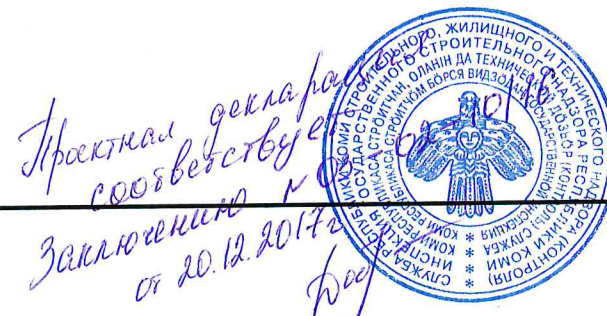 Проектная декларация
соответствует
Заключению N 02-10/18
от 20.12.2017г
СЛУЖБА РЕСПУБЛИКИ КОМИ СТРОИТЕЛЬНОГО, ЖИЛИЩНОГО И ТЕХНИЧЕСКОГО НАДЗОРА (КОНТРОЛЯ)
ИНСПЕКЦИЯ ГОСУДАРСТВЕННОГО СТРОИТЕЛЬНОГО НАДЗОРА РЕСПУБЛИКИ КОМИ
КОМИ РЕСПУБЛИКАСА СТРОИТЧАН, ОЛАНІН ДА ТЕХНИЧЕСКӦЙ ДОЗӦР (КОНТРОЛЬ) СЛУЖБА
КОМИ РЕСПУБЛИКАСА СТРОИТЧӦМ БӦРСЯ ВИДЗӦДАН ГОСУДАРСТВЕННӦЙ ИНСПЕКЦИЯ